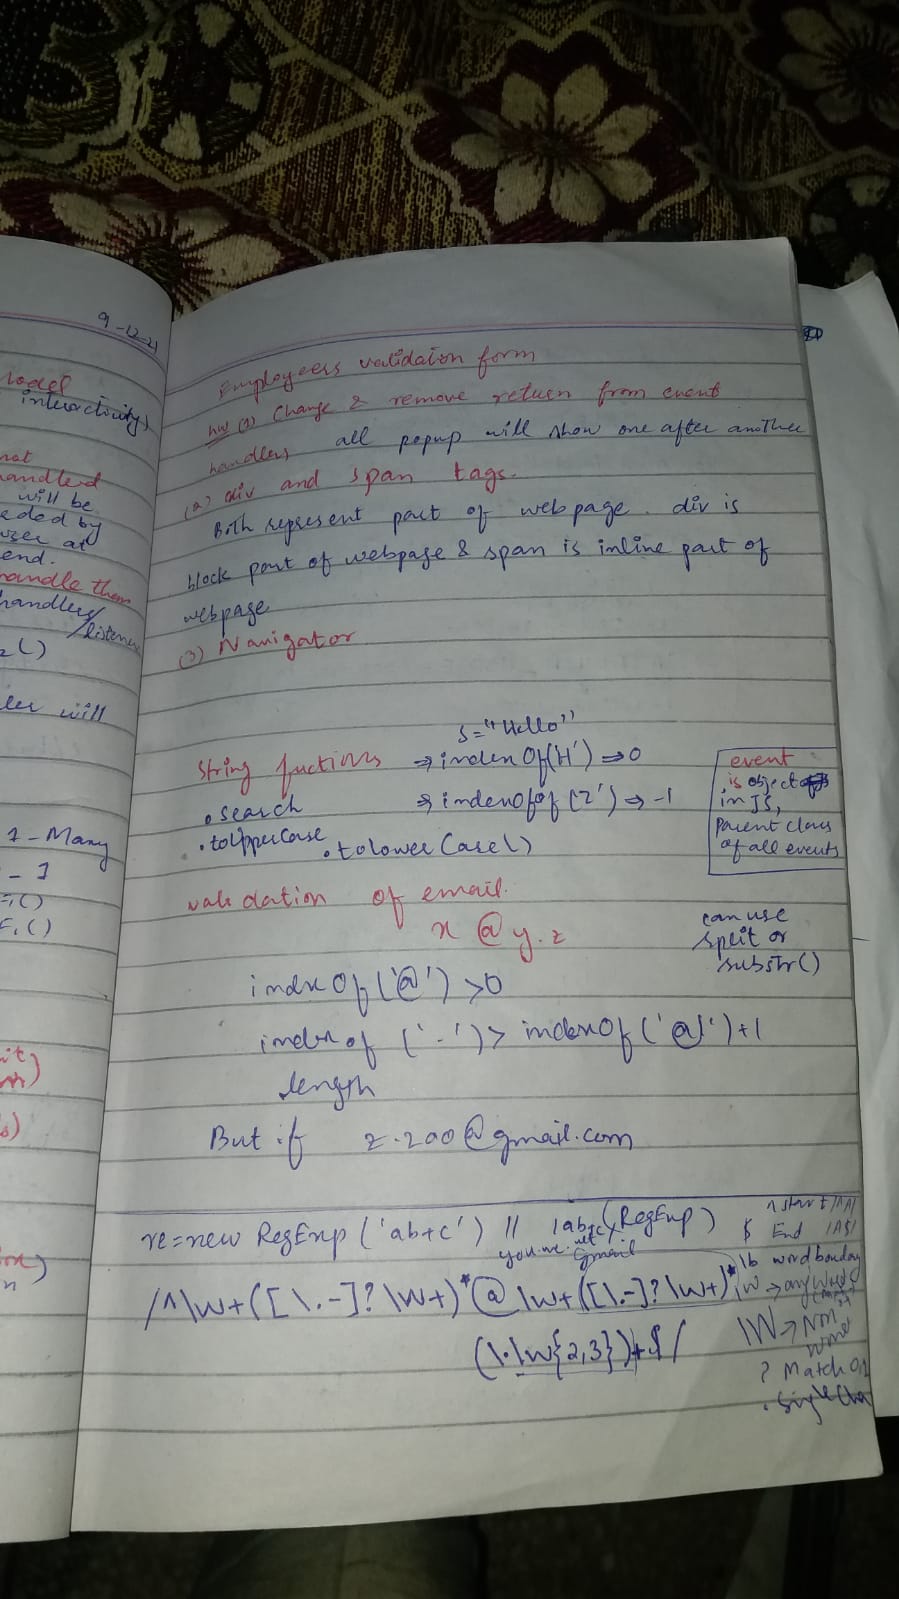 9-12-21
Model
interactivity)
not
handled
will be
eded by
user at
end.
handle them
handlers/
/listener
2()
ler will
1-Many
- 1
F.()
F.()
Employeers validaion form
hw (1) Change & remove return from event
handlers all popup will show one after another
(a) div and span tags.
Both represent part of webpage. div is
block part of webpage & span is inline part of
webpage
(3) Navigator
s="Hello"
string fuctions → indexOf(H') ⇒ 0
.search → indexofof('Z') ⇒ -1
.toUpperCase .tolowerCase()
event
is object
in JS,
Parent class
of all events
validation of email.
x @ y.z
can use
split or
substr()
indxOf('@') >0
index of ('.') > indexOf('@')+1
length
But if z.200@gmail.com
re=new RegExp('ab+c') // /ab+c/(RegExp)
^ start /^A/
$ End /A$/
you.me.net
gmail
\b word bouday
/^\w+([\.-]?\w+)*@\w+([\.-]?\w+)*
\w → any word
(\.\w{2,3})+$/
\W → Non
word
? Match
. Single Cha